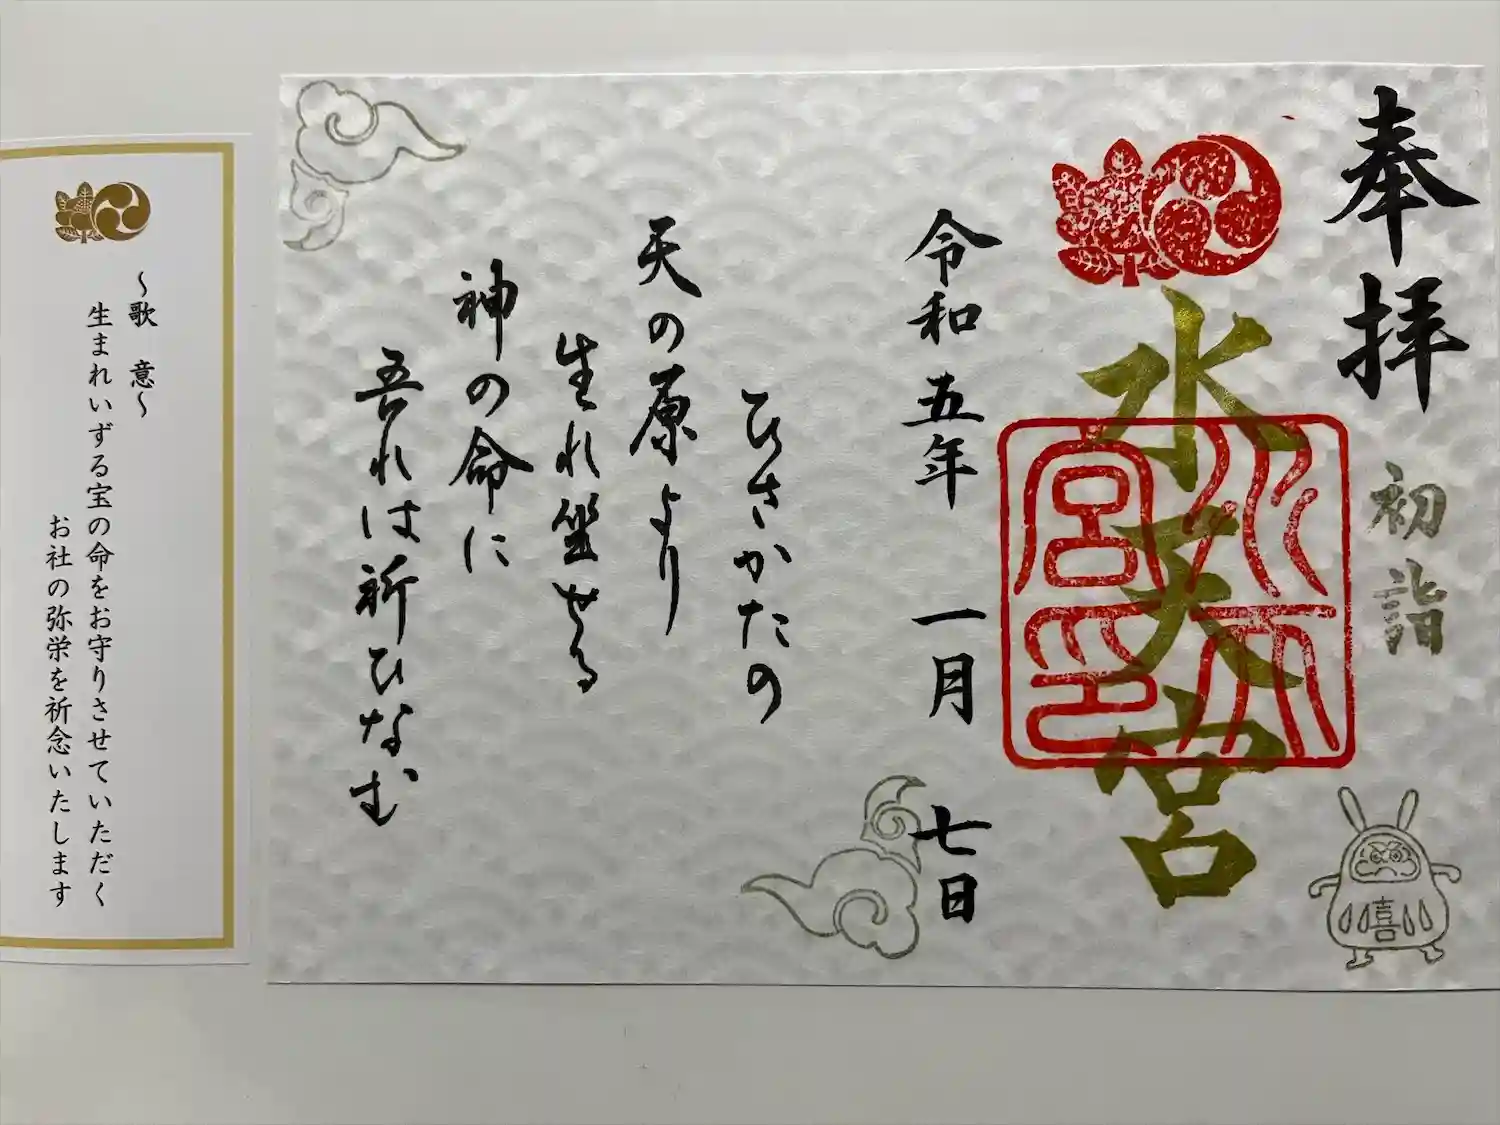 奉拝
初詣
喜
水天宮
水天宮印
令和五年 一月 七日
ひさかたの
天の原より
生れ坐せる
神の命に
吾れは祈ひなむ
〜歌 意〜
生まれいずる宝の命をお守りさせていただく
お社の弥栄を祈念いたします